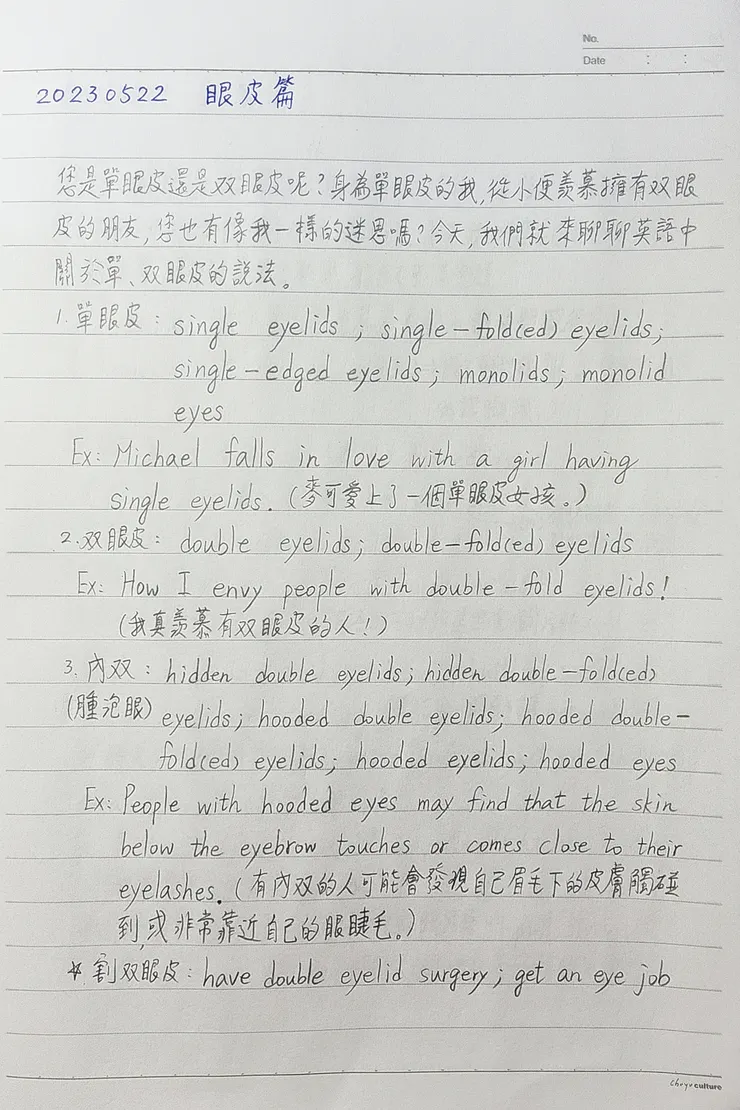 No.
Date : :
20230522 眼皮篇
您是單眼皮還是双眼皮呢?身為單眼皮的我,從小便羨慕擁有双眼
皮的朋友,您也有像我一樣的迷思嗎?今天,我們就來聊聊英語中
關於單、双眼皮的說法。
1. 單眼皮: single eyelids ; single-fold(ed) eyelids;
single-edged eyelids ; monolids ; monolid
eyes
Ex: Michael falls in love with a girl having
single eyelids. (麥可愛上了一個單眼皮女孩。)
2. 双眼皮: double eyelids; double-fold(ed) eyelids
Ex: How I envy people with double-fold eyelids!
(我真羨慕有双眼皮的人!)
3. 內双: hidden double eyelids; hidden double-fold(ed)
(腫泡眼) eyelids; hooded double eyelids; hooded double-
fold(ed) eyelids; hooded eyelids; hooded eyes
Ex: People with hooded eyes may find that the skin
below the eyebrow touches or comes close to their
eyelashes. (有內双的人可能會發現自己眉毛下的皮膚觸碰
到,或非常靠近自己的眼睫毛。)
* 割双眼皮: have double eyelid surgery; get an eye job
culture